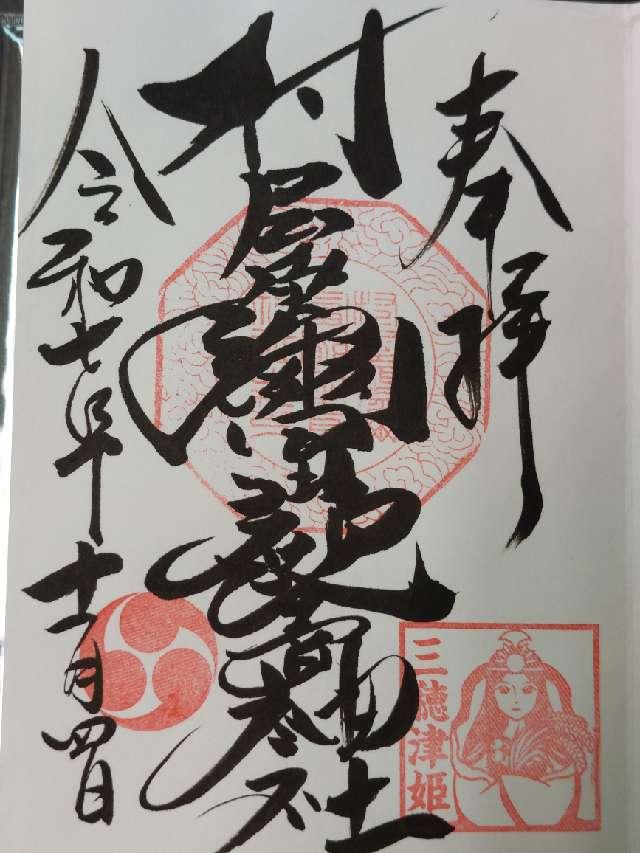 奉拝
村屋坐彌冨都比賣神社
令和七年十二月四日
三穂津姫